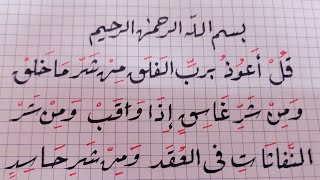 بسم اللّه الرحمٰن الرحيم
قُلْ أَعُوذُ بِرَبِّ الفَلَقِ مِنْ شَرِّ مَا خَلَقْ
وَمِنْ شَرِّ غَاسِقٍ إِذَا وَاقَبْ وَمِنْ شَرّ
النَّفَاثَاتِ فى العُقَدِ وَمِنْ شَرِّ حَاسِدٍ